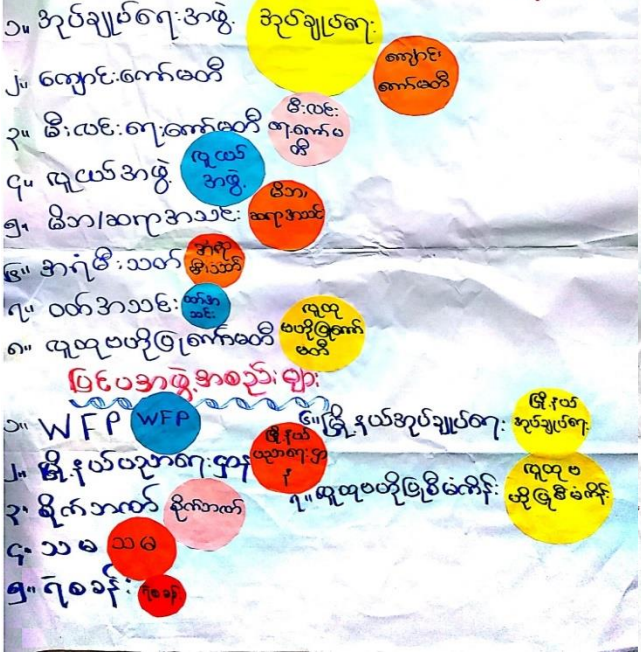 ၁။ အုပ်ချုပ်ရေးအဖွဲ့ အုပ်ချုပ်ရေး
၂။ ကျောင်းကော်မတီ ကျောင်းကော်မတီ
၃။ မီးလင်းရေးကော်မတီ မီးလင်းရေးကော်မတီ
၄။ လူငယ်အဖွဲ့ လူငယ်အဖွဲ့
၅။ မိဘ/ဆရာအသင်း မိဘ/ဆရာအသင်း
၆။ အရံမီးသတ် အရံမီးသတ်
၇။ ဝတ်အသင်း ဝတ်အသင်း
၈။ လူထုဗဟိုပြုကော်မတီ လူထုဗဟိုပြုကော်မတီ
ပြင်ပအဖွဲ့အစည်းများ
၁။ WFP WFP
၂။ မြို့နယ်ပညာရေးဌာန မြို့နယ်ပညာရေးဌာန
၃။ စိုက်ဘဏ် စိုက်ဘဏ်
၄။ သမ သမ
၅။ ရဲစခန်း ရဲစခန်း
၆။ မြို့နယ်အုပ်ချုပ်ရေး မြို့နယ်အုပ်ချုပ်ရေး
၇။ လူထုဗဟိုပြုစီမံကိန်း လူထုဗဟိုပြုစီမံကိန်း